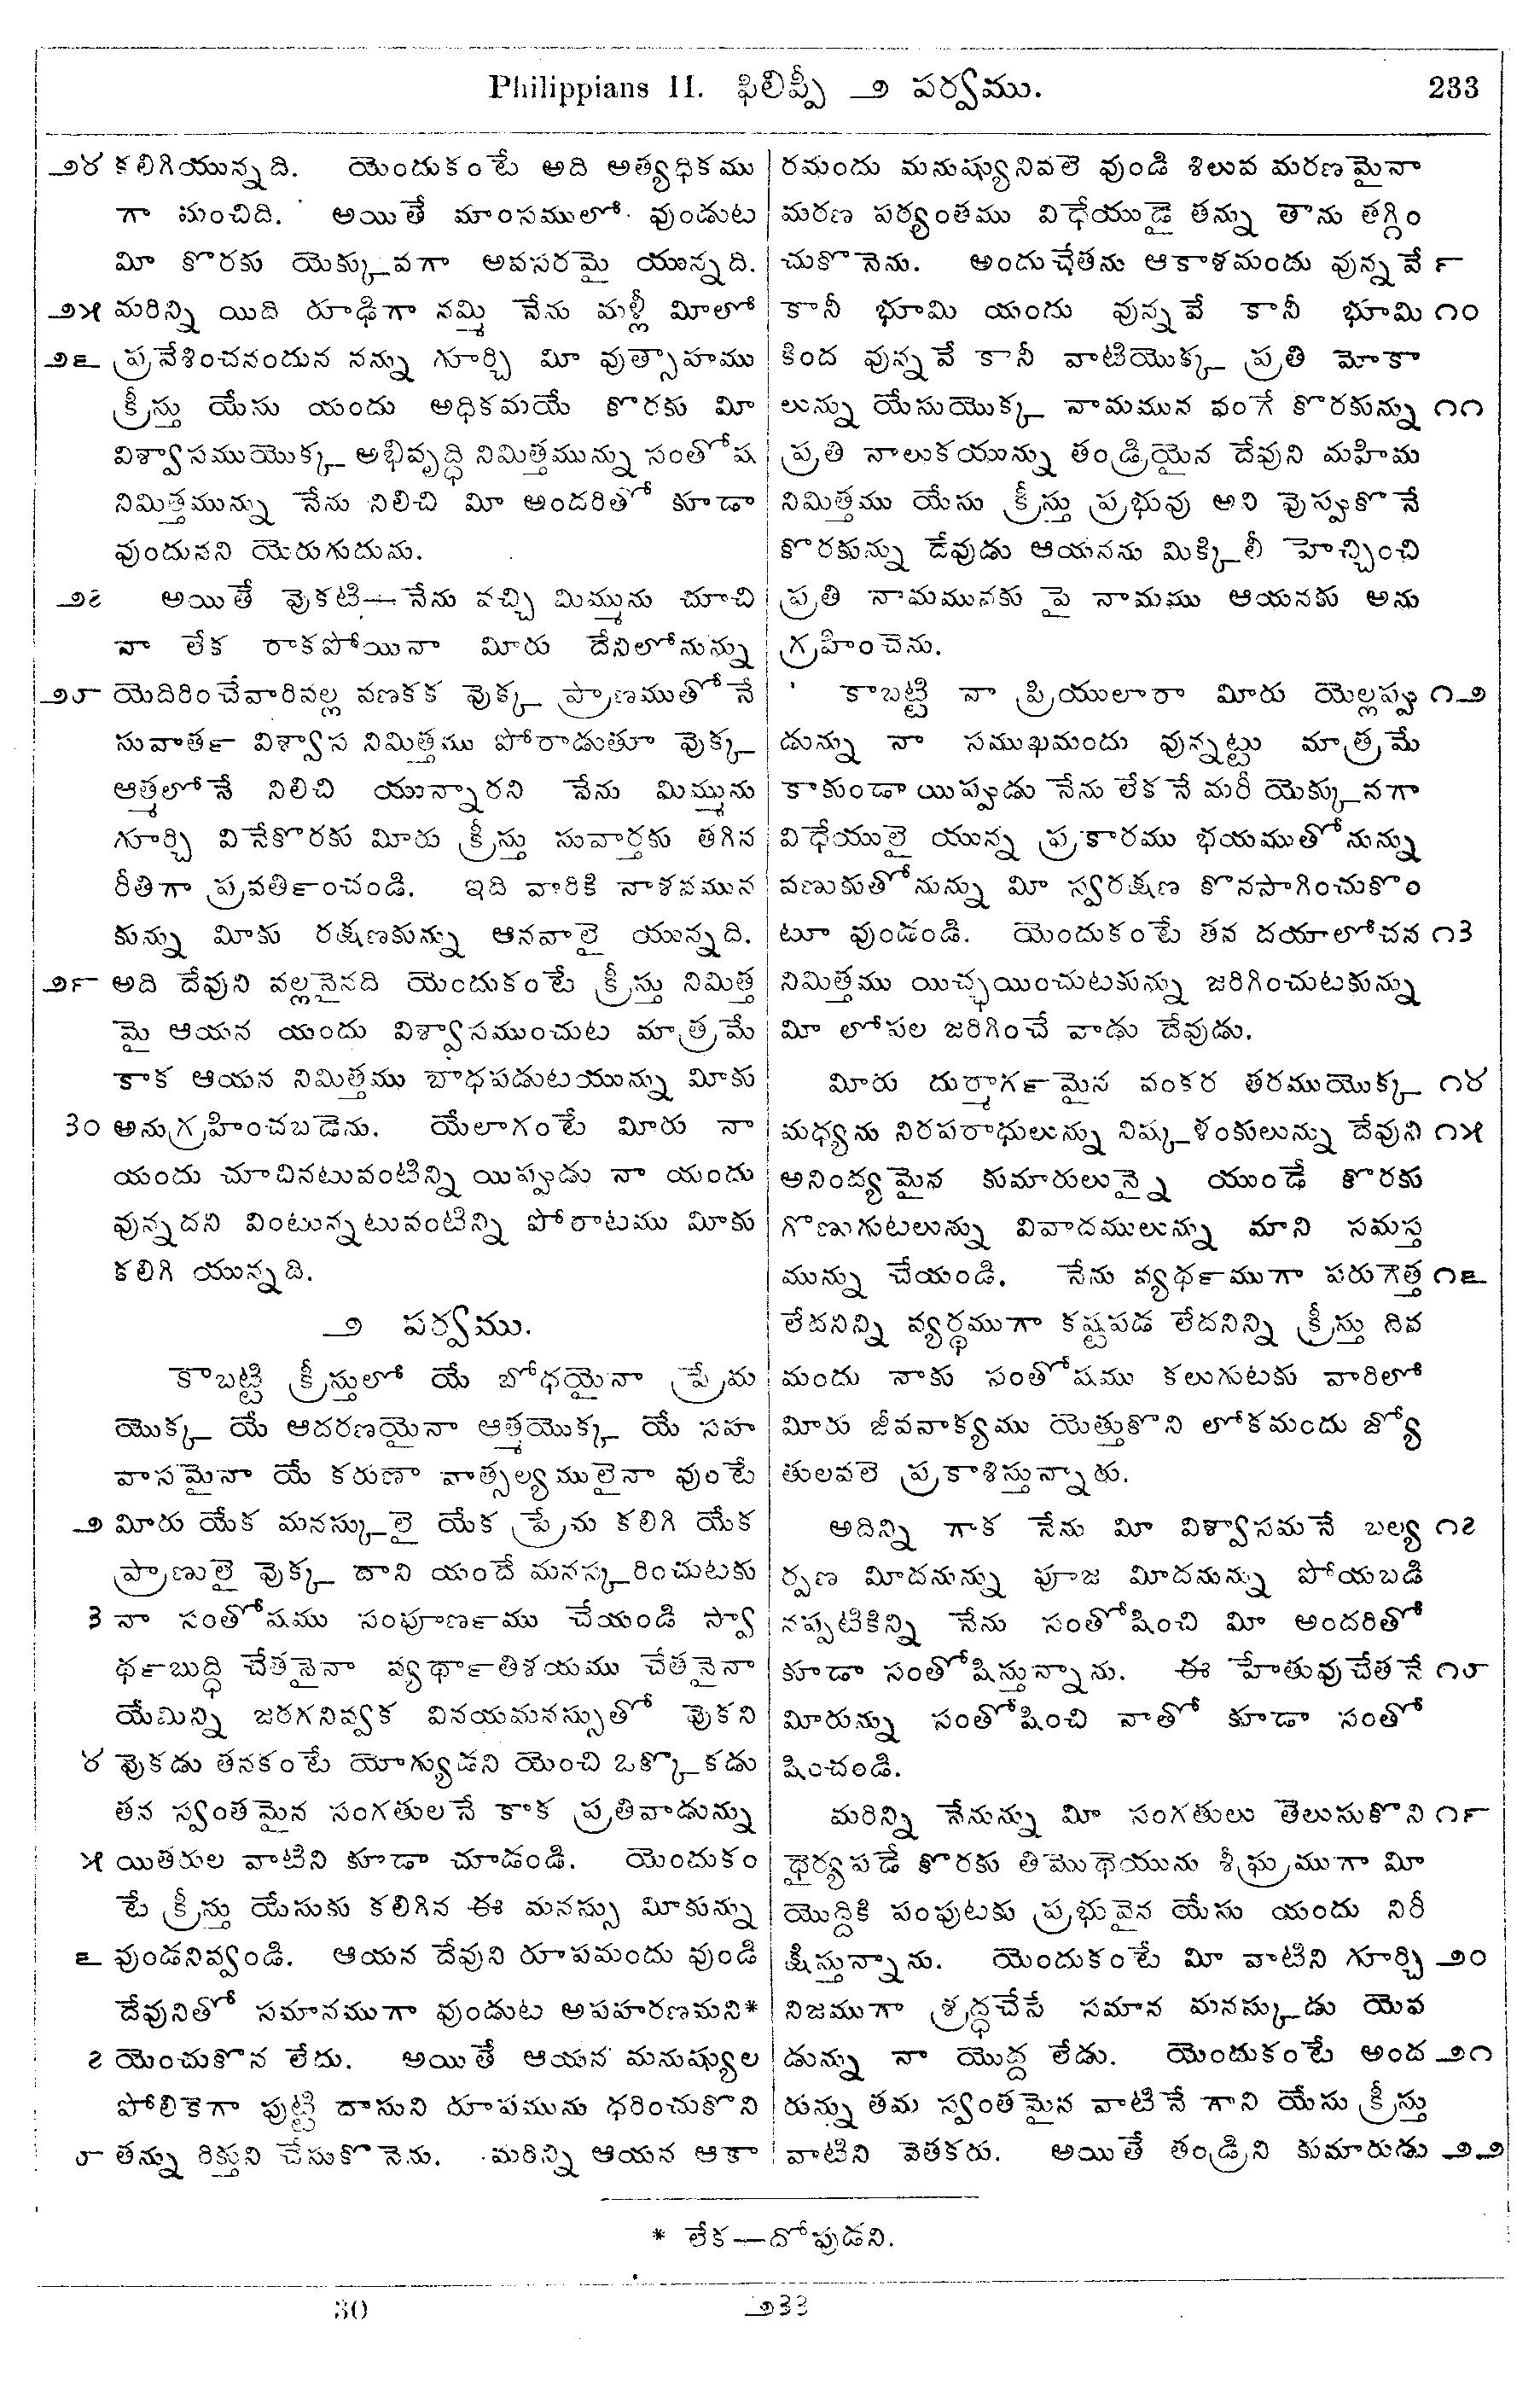 Philippians II. ఫిలిప్పీ ౨ పర్వము. 233
౨౪ కలిగియున్నది. యెందుకంటే అది అత్యధికము
గా మంచిది. అయితే మాంసములో వుండుట
మీ కొరకు యెక్కువగా అవసరమై యున్నది.
౨౫ మరిన్ని యిది రూఢిగా నమ్మి నేను మళ్లీ మీలో
౨౬ ప్రవేశించనందున నన్ను గూర్చి మీ వుత్సాహము
క్రీస్తు యేసు యందు అధికమయే కొరకు మీ
విశ్వాసముయొక్క అభివృద్ధి నిమిత్తమున్ను సంతోష
నిమిత్తమున్ను నేను నిలిచి మీ అందరితో కూడా
వుందునని యెరుగుదును.
౨౭ అయితే వొకటి—నేను వచ్చి మిమ్మును చూచి
నా లేక రాకపోయినా మీరు దేనిలోనున్ను
౨౮ యెదిరించేవారివల్ల వణకక వొక్క ప్రాణముతోనే
సువార్త విశ్వాస నిమిత్తము పోరాడుతూ వొక్క
ఆత్మలోనే నిలిచి యున్నారని నేను మిమ్మును
గూర్చి వినేకొరకు మీరు క్రీస్తు సువార్తకు తగిన
రీతిగా ప్రవర్తించండి. ఇది వారికి నాశనమున
కున్ను మీకు రక్షణకున్ను ఆనవాలై యున్నది.
౨౯ అది దేవుని వల్లనైనది యెందుకంటే క్రీస్తు నిమిత్త
మై ఆయన యందు విశ్వాసముంచుట మాత్రమే
కాక ఆయన నిమిత్తము బాధపడుటయున్ను మీకు
౩౦ అనుగ్రహించబడెను. యేలాగంటే మీరు నా
యందు చూచినటువంటిన్ని యిప్పుడు నా యందు
వున్నదని వింటున్నటువంటిన్ని పోరాటము మీకు
కలిగి యున్నది.
౨ పర్వము.
కాబట్టి క్రీస్తులో యే బోధయైనా ప్రేమ
యొక్క యే ఆదరణయైనా ఆత్మయొక్క యే సహ
వాసమైనా యే కరుణా వాత్సల్యములైనా వుంటే
౨ మీరు యేక మనస్కులై యేక ప్రేమ కలిగి యేక
ప్రాణులై వొక్క దాని యందే మనస్కరించుటకు
౩ నా సంతోషము సంపూర్ణము చేయండి స్వా
ర్థబుద్ధి చేతనైనా వ్యర్థాతిశయము చేతనైనా
యేమిన్ని జరగనివ్వక వినయమనస్సుతో వొకని
౪ వొకడు తనకంటే యోగ్యుడని యెంచి ఒక్కొకడు
తన స్వంతమైన సంగతులనే కాక ప్రతివాడున్ను
౫ యితరుల వాటిని కూడా చూడండి. యెందుకం
టే క్రీస్తు యేసుకు కలిగిన ఈ మనస్సు మీకున్ను
౬ వుండనివ్వండి. ఆయన దేవుని రూపమందు వుండి
దేవునితో సమానముగా వుండుట అపహరణమని*
౭ యెంచుకొన లేదు. అయితే ఆయన మనుష్యుల
పోలికెగా పుట్టి దాసుని రూపమును ధరించుకొని
౮ తన్ను రిక్తుని చేసుకొనెను. మరిన్ని ఆయన ఆకా
రమందు మనుష్యునివలె వుండి శిలువ మరణమైనా
మరణ పర్యంతము విధేయుడై తన్ను తాను తగ్గిం
చుకొనెను. అందుచేతను ఆకాళమందు వున్నవే ౯
కానీ భూమి యందు వున్నవే కానీ భూమి ౧౦
కింద వున్నవే కానీ వాటియొక్క ప్రతి మోకా
లున్ను యేసుయొక్క నామమున వంగే కొరకున్ను ౧౧
ప్రతి నాలుకయున్ను తండ్రియైన దేవుని మహిమ
నిమిత్తము యేసు క్రీస్తు ప్రభువు అని వొప్పుకొనే
కొరకున్ను దేవుడు ఆయనను మిక్కిలీ హెచ్చించి
ప్రతి నామమునకు పై నామము ఆయనకు అను
గ్రహించెను.
కాబట్టి నా ప్రియులారా మీరు యెల్లప్పు ౧౨
డున్ను నా సముఖమందు వున్నట్టు మాత్రమే
కాకుండా యిప్పుడు నేను లేకనే మరీ యెక్కువగా
విధేయులై యున్న ప్రకారము భయముతోనున్ను
వణుకుతోనున్ను మీ స్వరక్షణ కొనసాగించుకొం
టూ వుండండి. యెందుకంటే తన దయాలోచన ౧౩
నిమిత్తము యిచ్ఛయించుటకున్ను జరిగించుటకున్ను
మీ లోపల జరిగించే వాడు దేవుడు.
మీరు దుర్మార్గమైన వంకర తరముయొక్క ౧౪
మధ్యను నిరపరాధులున్ను నిష్కళంకులున్ను దేవుని ౧౫
అనింద్యమైన కుమారులునై యుండే కొరకు
గొణుగుటలున్ను వివాదములున్ను మాని సమస్త
మున్ను చేయండి. నేను వ్యర్థముగా పరుగెత్త ౧౬
లేదనిన్ని వ్యర్థముగా కష్టపడ లేదనిన్ని క్రీస్తు దివ
మందు నాకు సంతోషము కలుగుటకు వారిలో
మీరు జీవవాక్యము యెత్తుకొని లోకమందు జ్యో
తులవలె ప్రకాశిస్తున్నారు.
అదిన్ని గాక నేను మీ విశ్వాసమనే బల్య ౧౭
ర్పణ మీదనున్ను పూజ మీదనున్ను పోయబడి
నప్పటికిన్ని నేను సంతోషించి మీ అందరితో
కూడా సంతోషిస్తున్నాను. ఈ హేతువుచేతనే ౧౮
మీరున్ను సంతోషించి నాతో కూడా సంతో
షించండి.
మరిన్ని నేనున్ను మీ సంగతులు తెలుసుకొని ౧౯
ధైర్యపడే కొరకు తిమొథెయును శీఘ్రముగా మీ
యొద్దికి పంపుటకు ప్రభువైన యేసు యందు నిరీ
క్షిస్తున్నాను. యెందుకంటే మీ వాటిని గూర్చి ౨౦
నిజముగా శ్రద్ధచేసే సమాన మనస్కుడు యెవ
డున్ను నా యొద్ద లేడు. యెందుకంటే అంద ౨౧
రున్ను తమ స్వంతమైన వాటినే గాని యేసు క్రీస్తు
వాటిని వెతకరు. అయితే తండ్రిని కుమారుడు ౨౨
* లేక—దోపుడని.
30 ౨౩౩